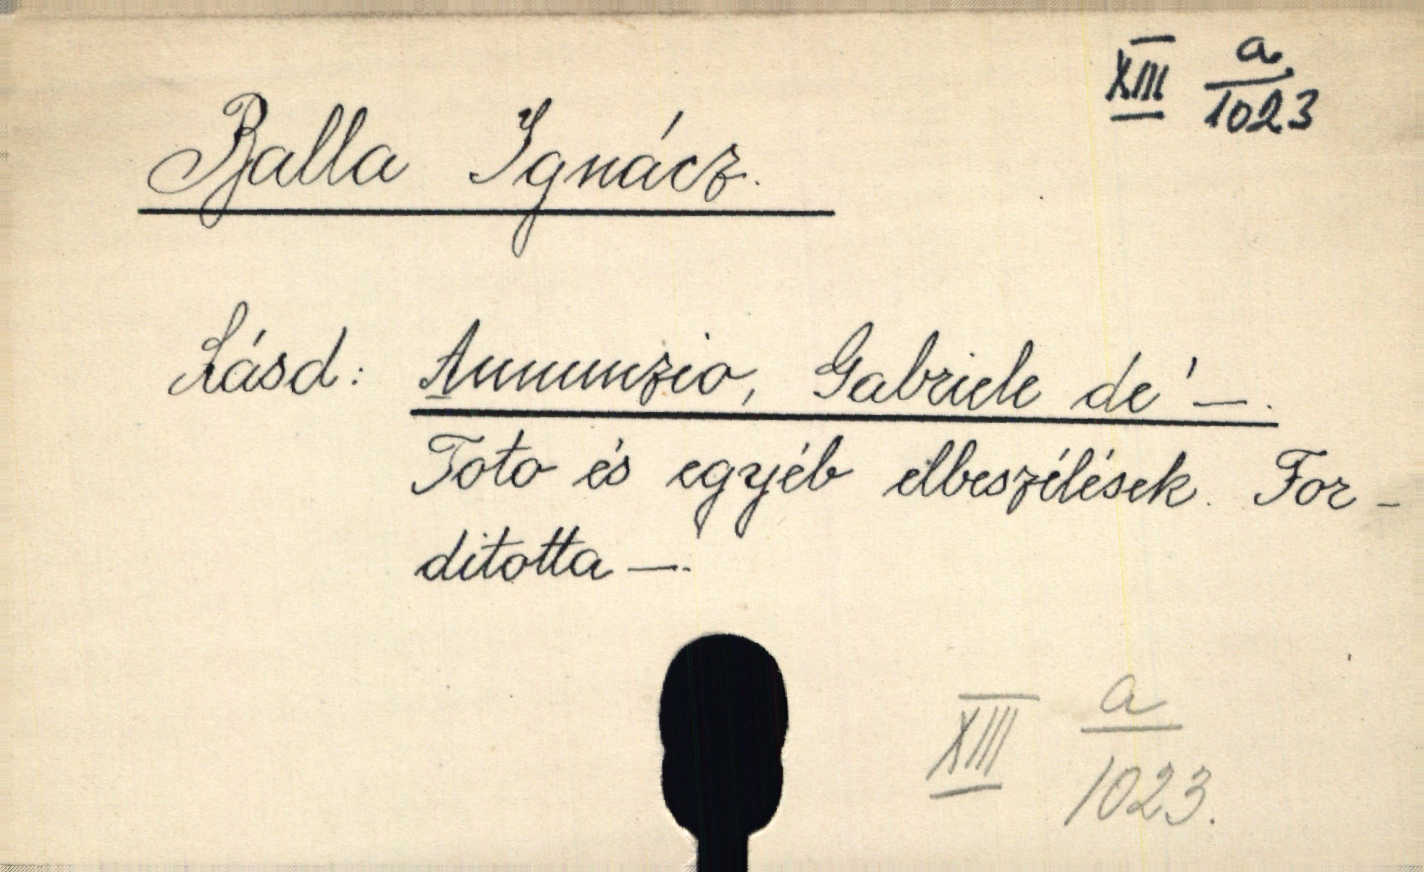 XIII a
1023
Balla Ignácz.
Lásd: Annunzio, Gabriele de' —.
Toto és egyéb elbeszélések. For-
ditotta —.
XIII a
1023.